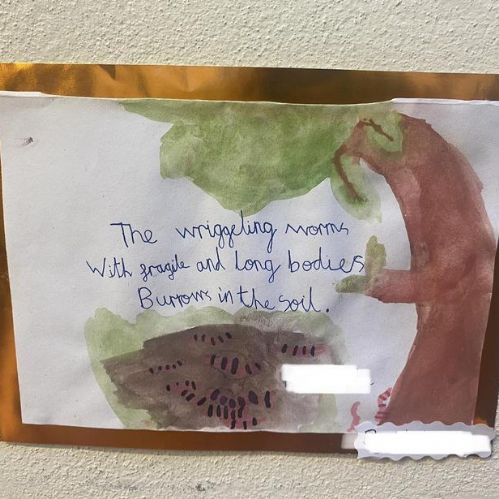 The wriggeling worms
With fragile and long bodies
Burrows in the soil.